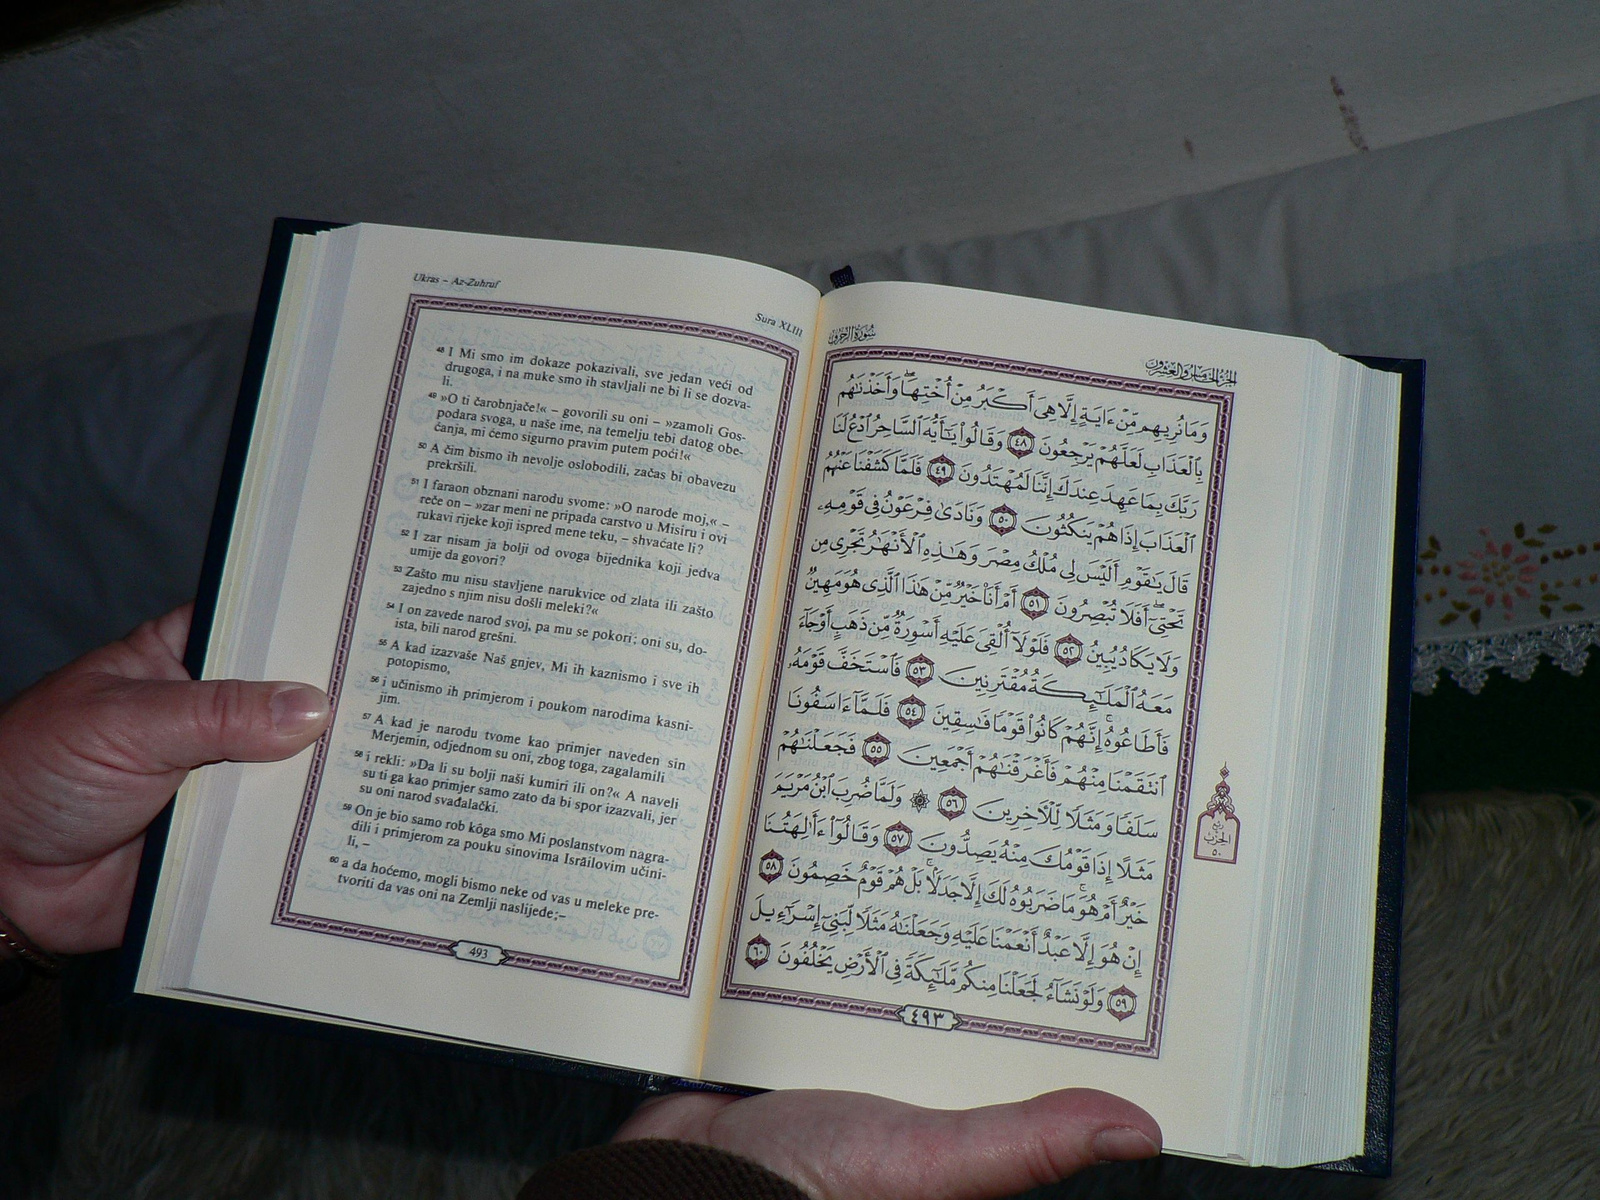 Ukras – Az-Zuhruf
Sura XLIII
48 I Mi smo im dokaze pokazivali, sve jedan veći od
drugoga, i na muke smo ih stavljali ne bi li se dozva-
li.
49 »O ti čarobnjače!« – govorili su oni – »zamoli Gos-
podara svoga, u naše ime, na temelju tebi datog obe-
ćanja, mi ćemo sigurno pravim putem poći!«
50 A čim bismo ih nevolje oslobodili, začas bi obavezu
prekršili.
51 I faraon obznani narodu svome: »O narode moj,« –
reče on – »zar meni ne pripada carstvo u Misiru i ovi
rukavi rijeke koji ispred mene teku, – shvaćate li?
52 I zar nisam ja bolji od ovoga bijednika koji jedva
umije da govori?
53 Zašto mu nisu stavljene narukvice od zlata ili zašto
zajedno s njim nisu došli meleki?«
54 I on zavede narod svoj, pa mu se pokori; oni su, do-
ista, bili narod grešni.
55 A kad izazvaše Naš gnjev, Mi ih kaznismo i sve ih
potopismo,
56 i učinismo ih primjerom i poukom narodima kasni-
jim.
57 A kad je narodu tvome kao primjer naveden sin
Merjemin, odjednom su oni, zbog toga, zagalamili
58 i rekli: »Da li su bolji naši kumiri ili on?« A naveli
su ti ga kao primjer samo zato da bi spor izazvali, jer
su oni narod svađalački.
59 On je bio samo rob kôga smo Mi poslanstvom nagra-
dili i primjerom za pouku sinovima Isrāilovim učini-
li, –
60 a da hoćemo, mogli bismo neke od vas u meleke pre-
tvoriti da vas oni na Zemlji naslijede;–
493
سُورَةُ الزُّخْرُفِ
الجزء الخامس والعشرون
وَمَا نُرِيهِم مِّنْ ءَايَةٍ إِلَّا هِىَ أَكْبَرُ مِنْ أُخْتِهَا ۖ وَأَخَذْنَٰهُم
بِٱلْعَذَابِ لَعَلَّهُمْ يَرْجِعُونَ ٤٨ وَقَالُوا۟ يَٰٓأَيُّهَ ٱلسَّاحِرُ ٱدْعُ لَنَا
رَبَّكَ بِمَا عَهِدَ عِندَكَ إِنَّنَا لَمُهْتَدُونَ ٤٩ فَلَمَّا كَشَفْنَا عَنْهُمُ
ٱلْعَذَابَ إِذَا هُمْ يَنكُثُونَ ٥٠ وَنَادَىٰ فِرْعَوْنُ فِى قَوْمِهِۦ
قَالَ يَٰقَوْمِ أَلَيْسَ لِى مُلْكُ مِصْرَ وَهَٰذِهِ ٱلْأَنْهَٰرُ تَجْرِى مِن
تَحْتِىٓ ۖ أَفَلَا تُبْصِرُونَ ٥١ أَمْ أَنَا۠ خَيْرٌ مِّنْ هَٰذَا ٱلَّذِى هُوَ مَهِينٌ
وَلَا يَكَادُ يُبِينُ ٥٢ فَلَوْلَآ أُلْقِىَ عَلَيْهِ أَسْوِرَةٌ مِّن ذَهَبٍ أَوْ جَآءَ
مَعَهُ ٱلْمَلَٰٓئِكَةُ مُقْتَرِنِينَ ٥٣ فَٱسْتَخَفَّ قَوْمَهُۥ
فَأَطَاعُوهُ ۚ إِنَّهُمْ كَانُوا۟ قَوْمًا فَٰسِقِينَ ٥٤ فَلَمَّآ ءَاسَفُونَا
ٱنتَقَمْنَا مِنْهُمْ فَأَغْرَقْنَٰهُمْ أَجْمَعِينَ ٥٥ فَجَعَلْنَٰهُمْ
سَلَفًا وَمَثَلًا لِّلْءَاخِرِينَ ٥٦ ۞ وَلَمَّا ضُرِبَ ٱبْنُ مَرْيَمَ
مَثَلًا إِذَا قَوْمُكَ مِنْهُ يَصِدُّونَ ٥٧ وَقَالُوٓا۟ ءَأَٰلِهَتُنَا
خَيْرٌ أَمْ هُوَ ۚ مَا ضَرَبُوهُ لَكَ إِلَّا جَدَلًۢا ۚ بَلْ هُمْ قَوْمٌ خَصِمُونَ ٥٨
إِنْ هُوَ إِلَّا عَبْدٌ أَنْعَمْنَا عَلَيْهِ وَجَعَلْنَٰهُ مَثَلًا لِّبَنِىٓ إِسْرَٰٓءِيلَ
٥٩ وَلَوْ نَشَآءُ لَجَعَلْنَا مِنكُم مَّلَٰٓئِكَةً فِى ٱلْأَرْضِ يَخْلُفُونَ ٦٠
ربع
الحزب
٥٠
٤٩٣